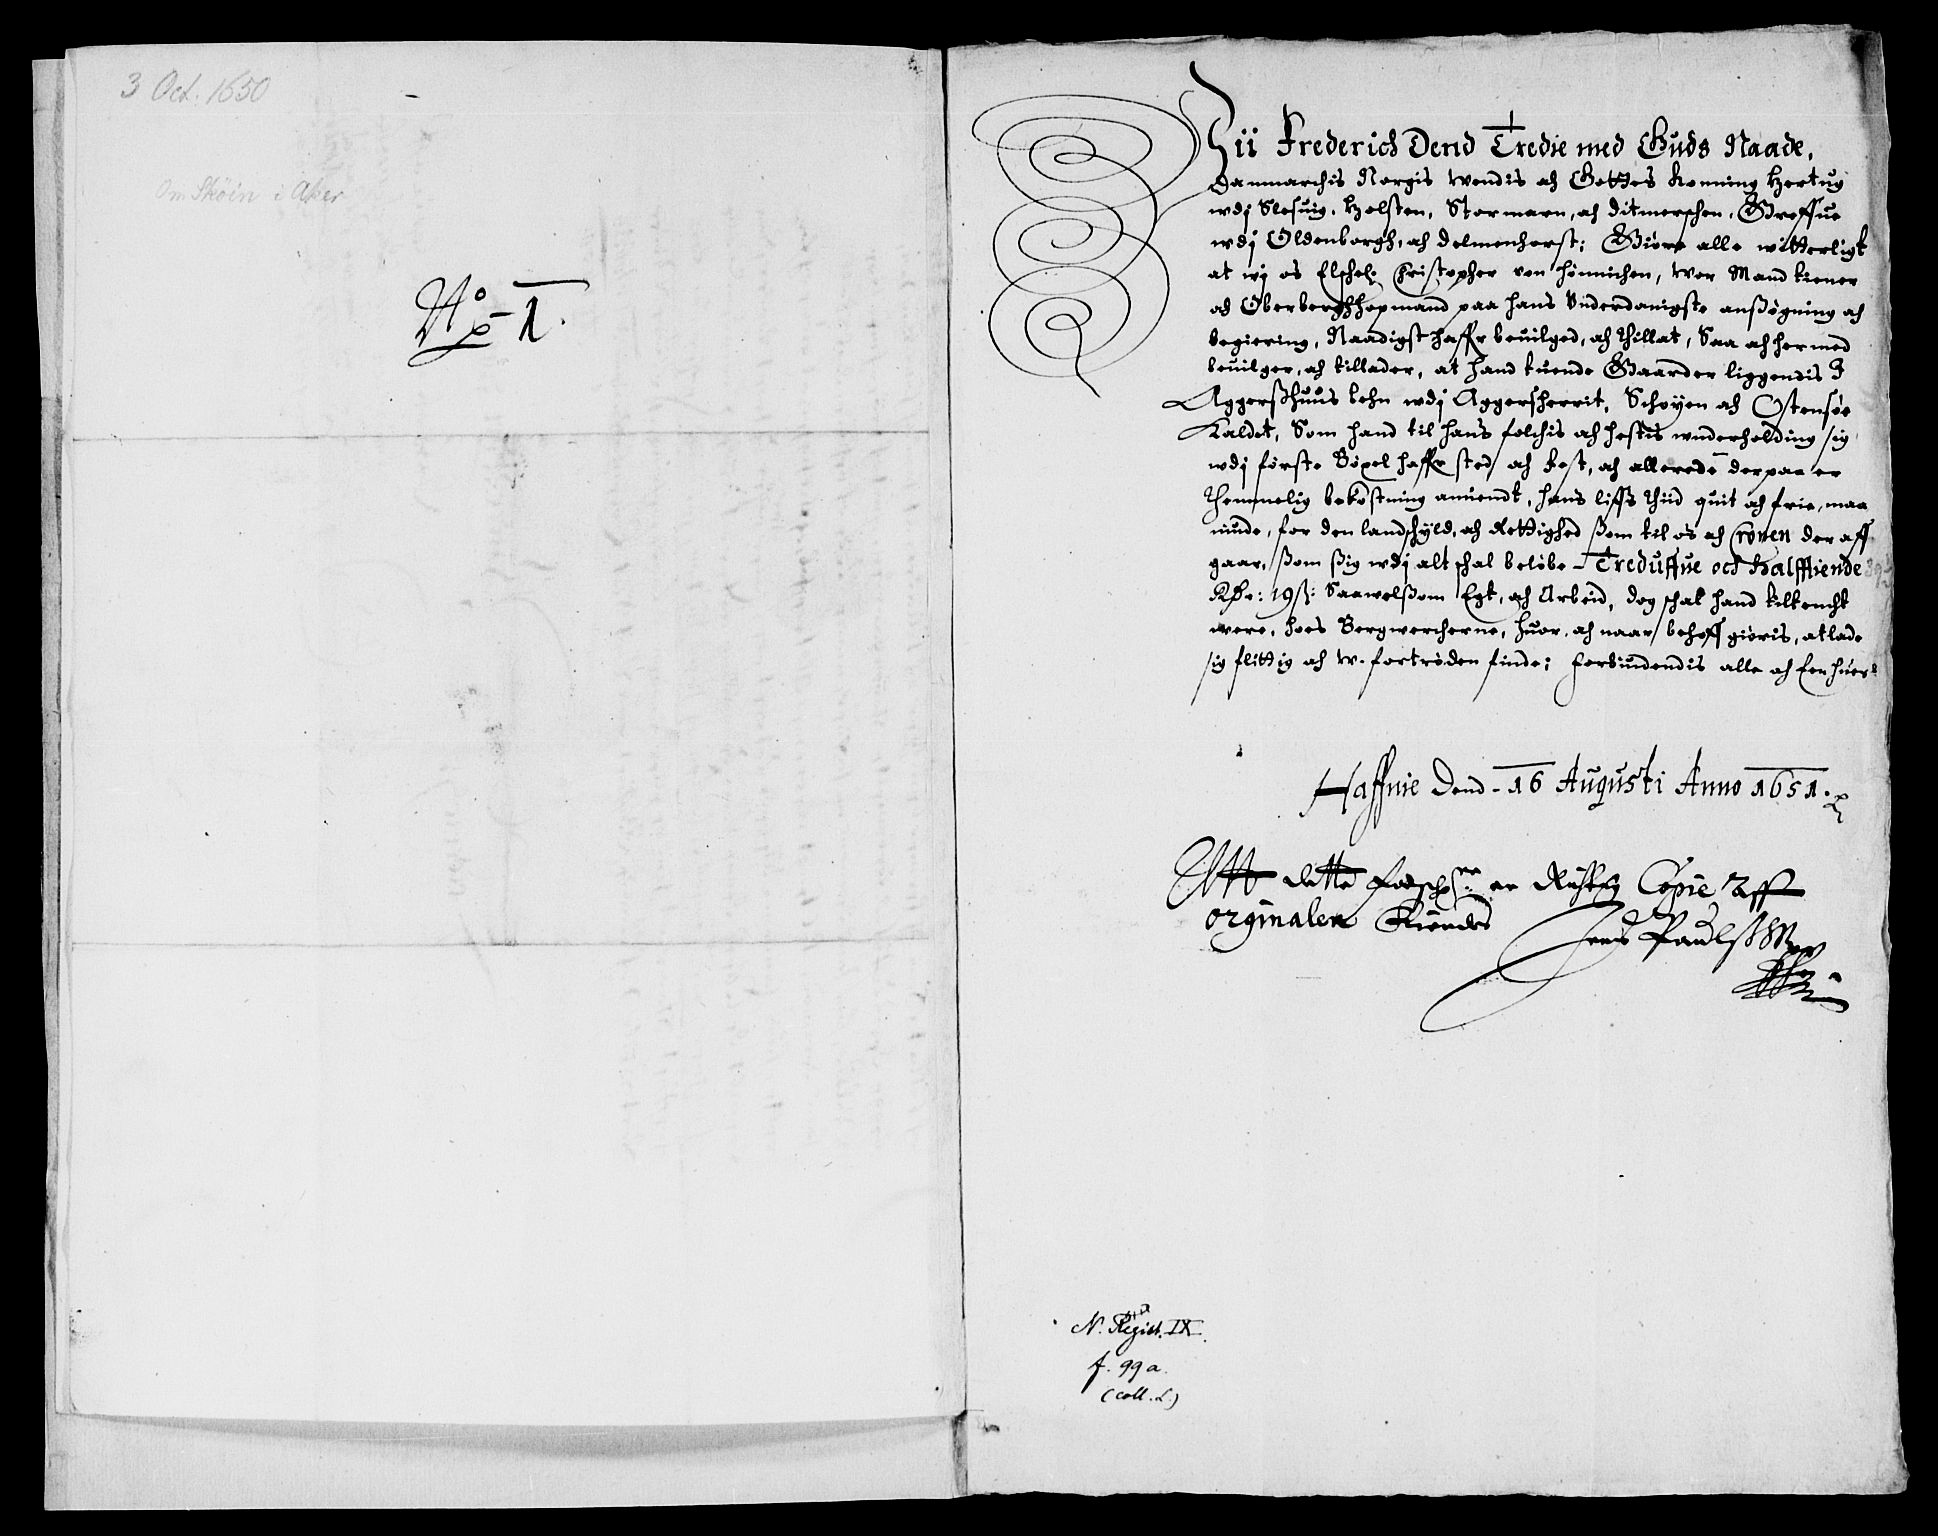 3 Oct. 1650
Om Skøin i Aker
No 1.
Wii Frederich Dend Tredie med Guds Naade,
Danmarchis Norgis Wendis och Gottes Konning Hertug
wdj Slesuig, Holsten, Stormarn, och Ditmerschen, Greffue
wdj Oldenborgh, och Delmenhorst; Giøre alle witterligt
at wj os Elschel: Christopher von Hønnichen, Wor Mand tiener
och Oberberghhopmand paa hans Underdanigste anßøgning och
begiering, Naadigst haffr beuilged, och thillat, Saa och hermed
beuilger, och tillader, at hand tuende Gaarder liggendis J
Aggerßhuus lehn wdj Aggersherrit, Schøyen och Ostensøe
Kaldet, Som hand til hans folchis och hestis wnderholding sig
wdj første Bøxel haffr sted och fest, och allerede derpaa er
themmelig bekostning anuendt, hans liffs thid quit och frie, maa
niude, for den landschyld, och Rettighed ßom til os och Cronen der aff
gaar, ßom ßig wdj alt schal beløbe - Treduffue och Halffiende
Rdr: 19 ß: Saawelßom Egt, och Arbeid, dog schal hand tiltencht
were, hoes Bergwercherne, huor, och naar behoff giøris, at lade
sig flittig och w-fortrøden finde; forbiudendis alle och Een huer
Haffnie Dend - 16 Augusti Anno 1651.
Att dette er Rigtig Copie Aff
orginalen Kiendes
Jens Paulß
N. Regist. IX.
f. 99 a.
(coll. L.)